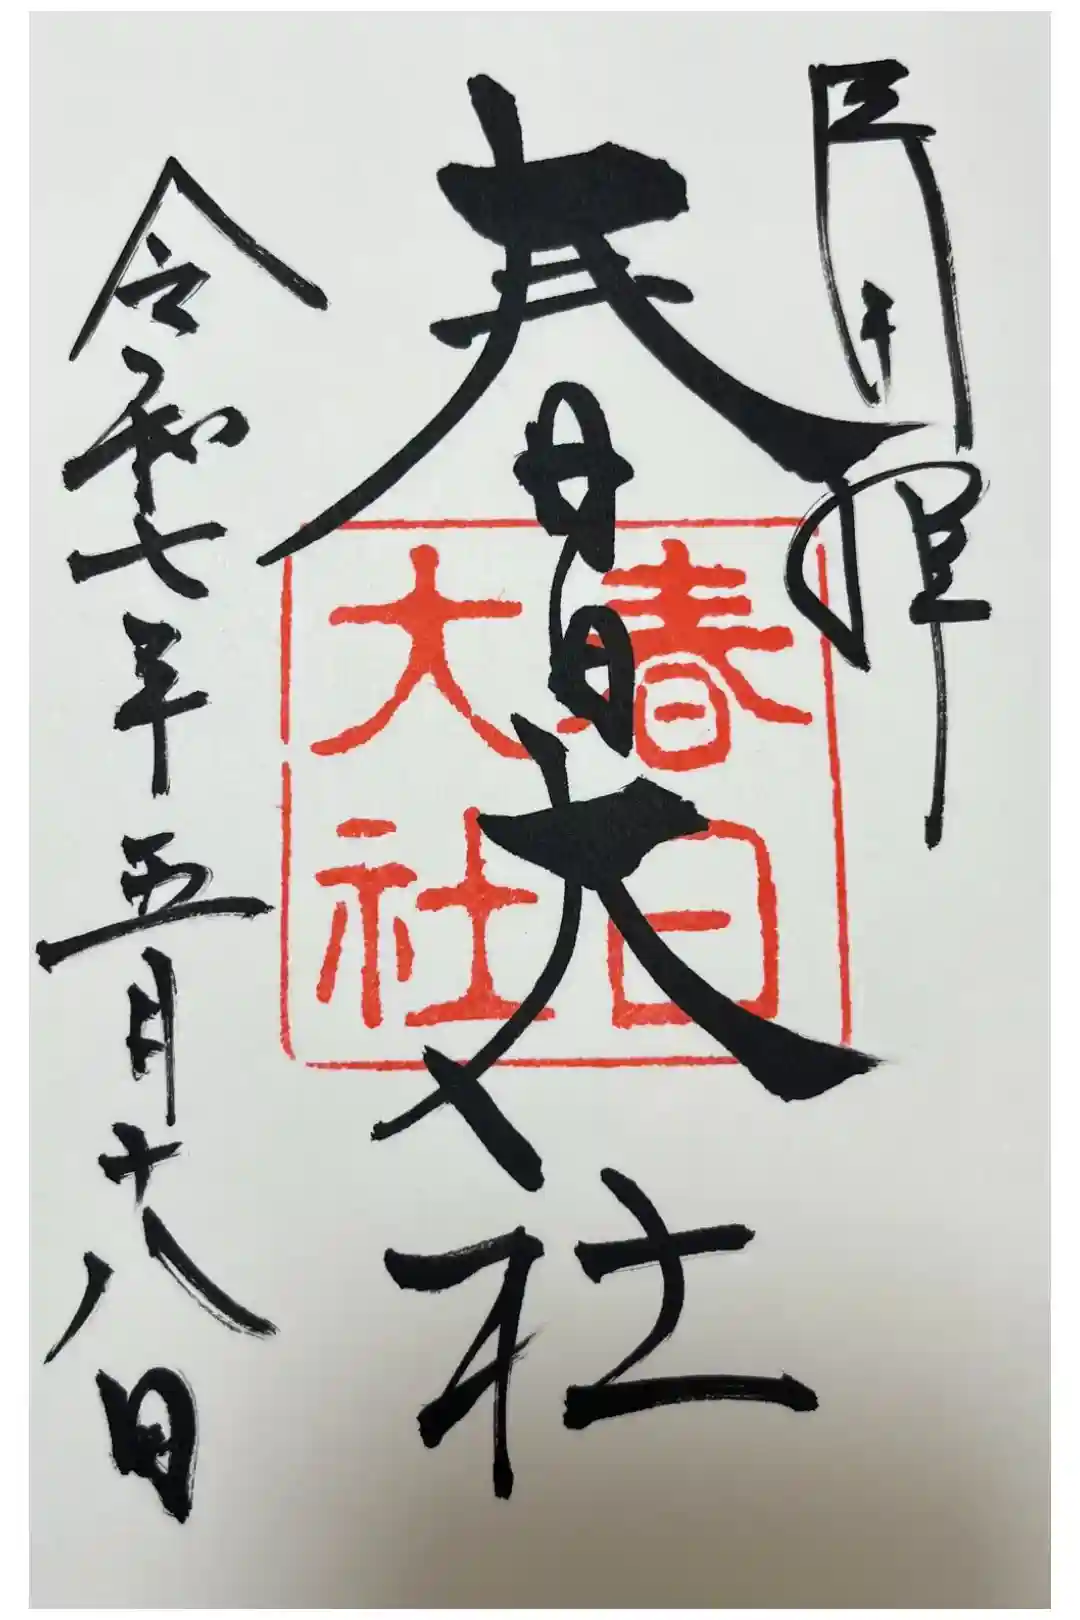 春日大社
令和七年五月十八日
春日
大社